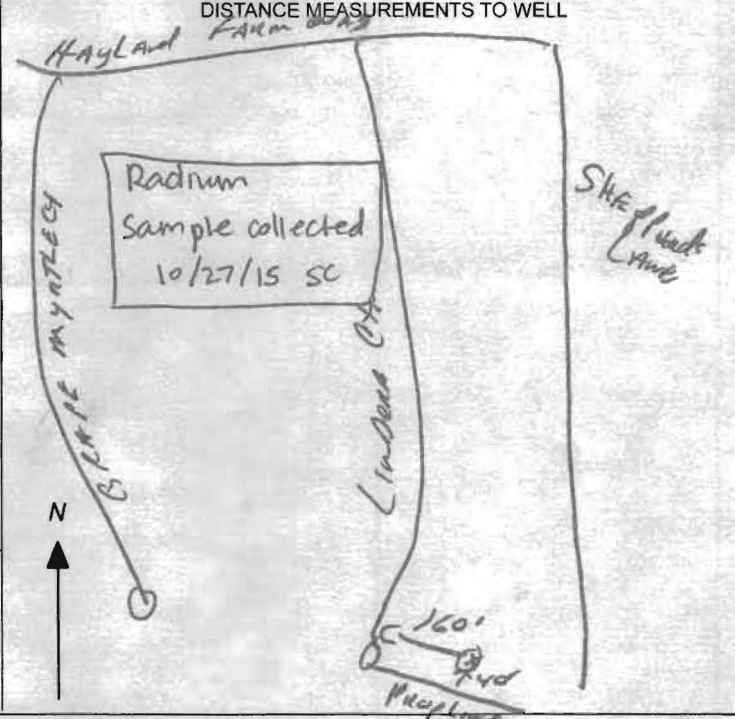 DISTANCE MEASUREMENTS TO WELL
HAYLAND FARM WAY
Radium
Sample collected
10/27/15 SC
GRAPE MYRTLE Ct
LINDERA Ct
LANE
N
160'